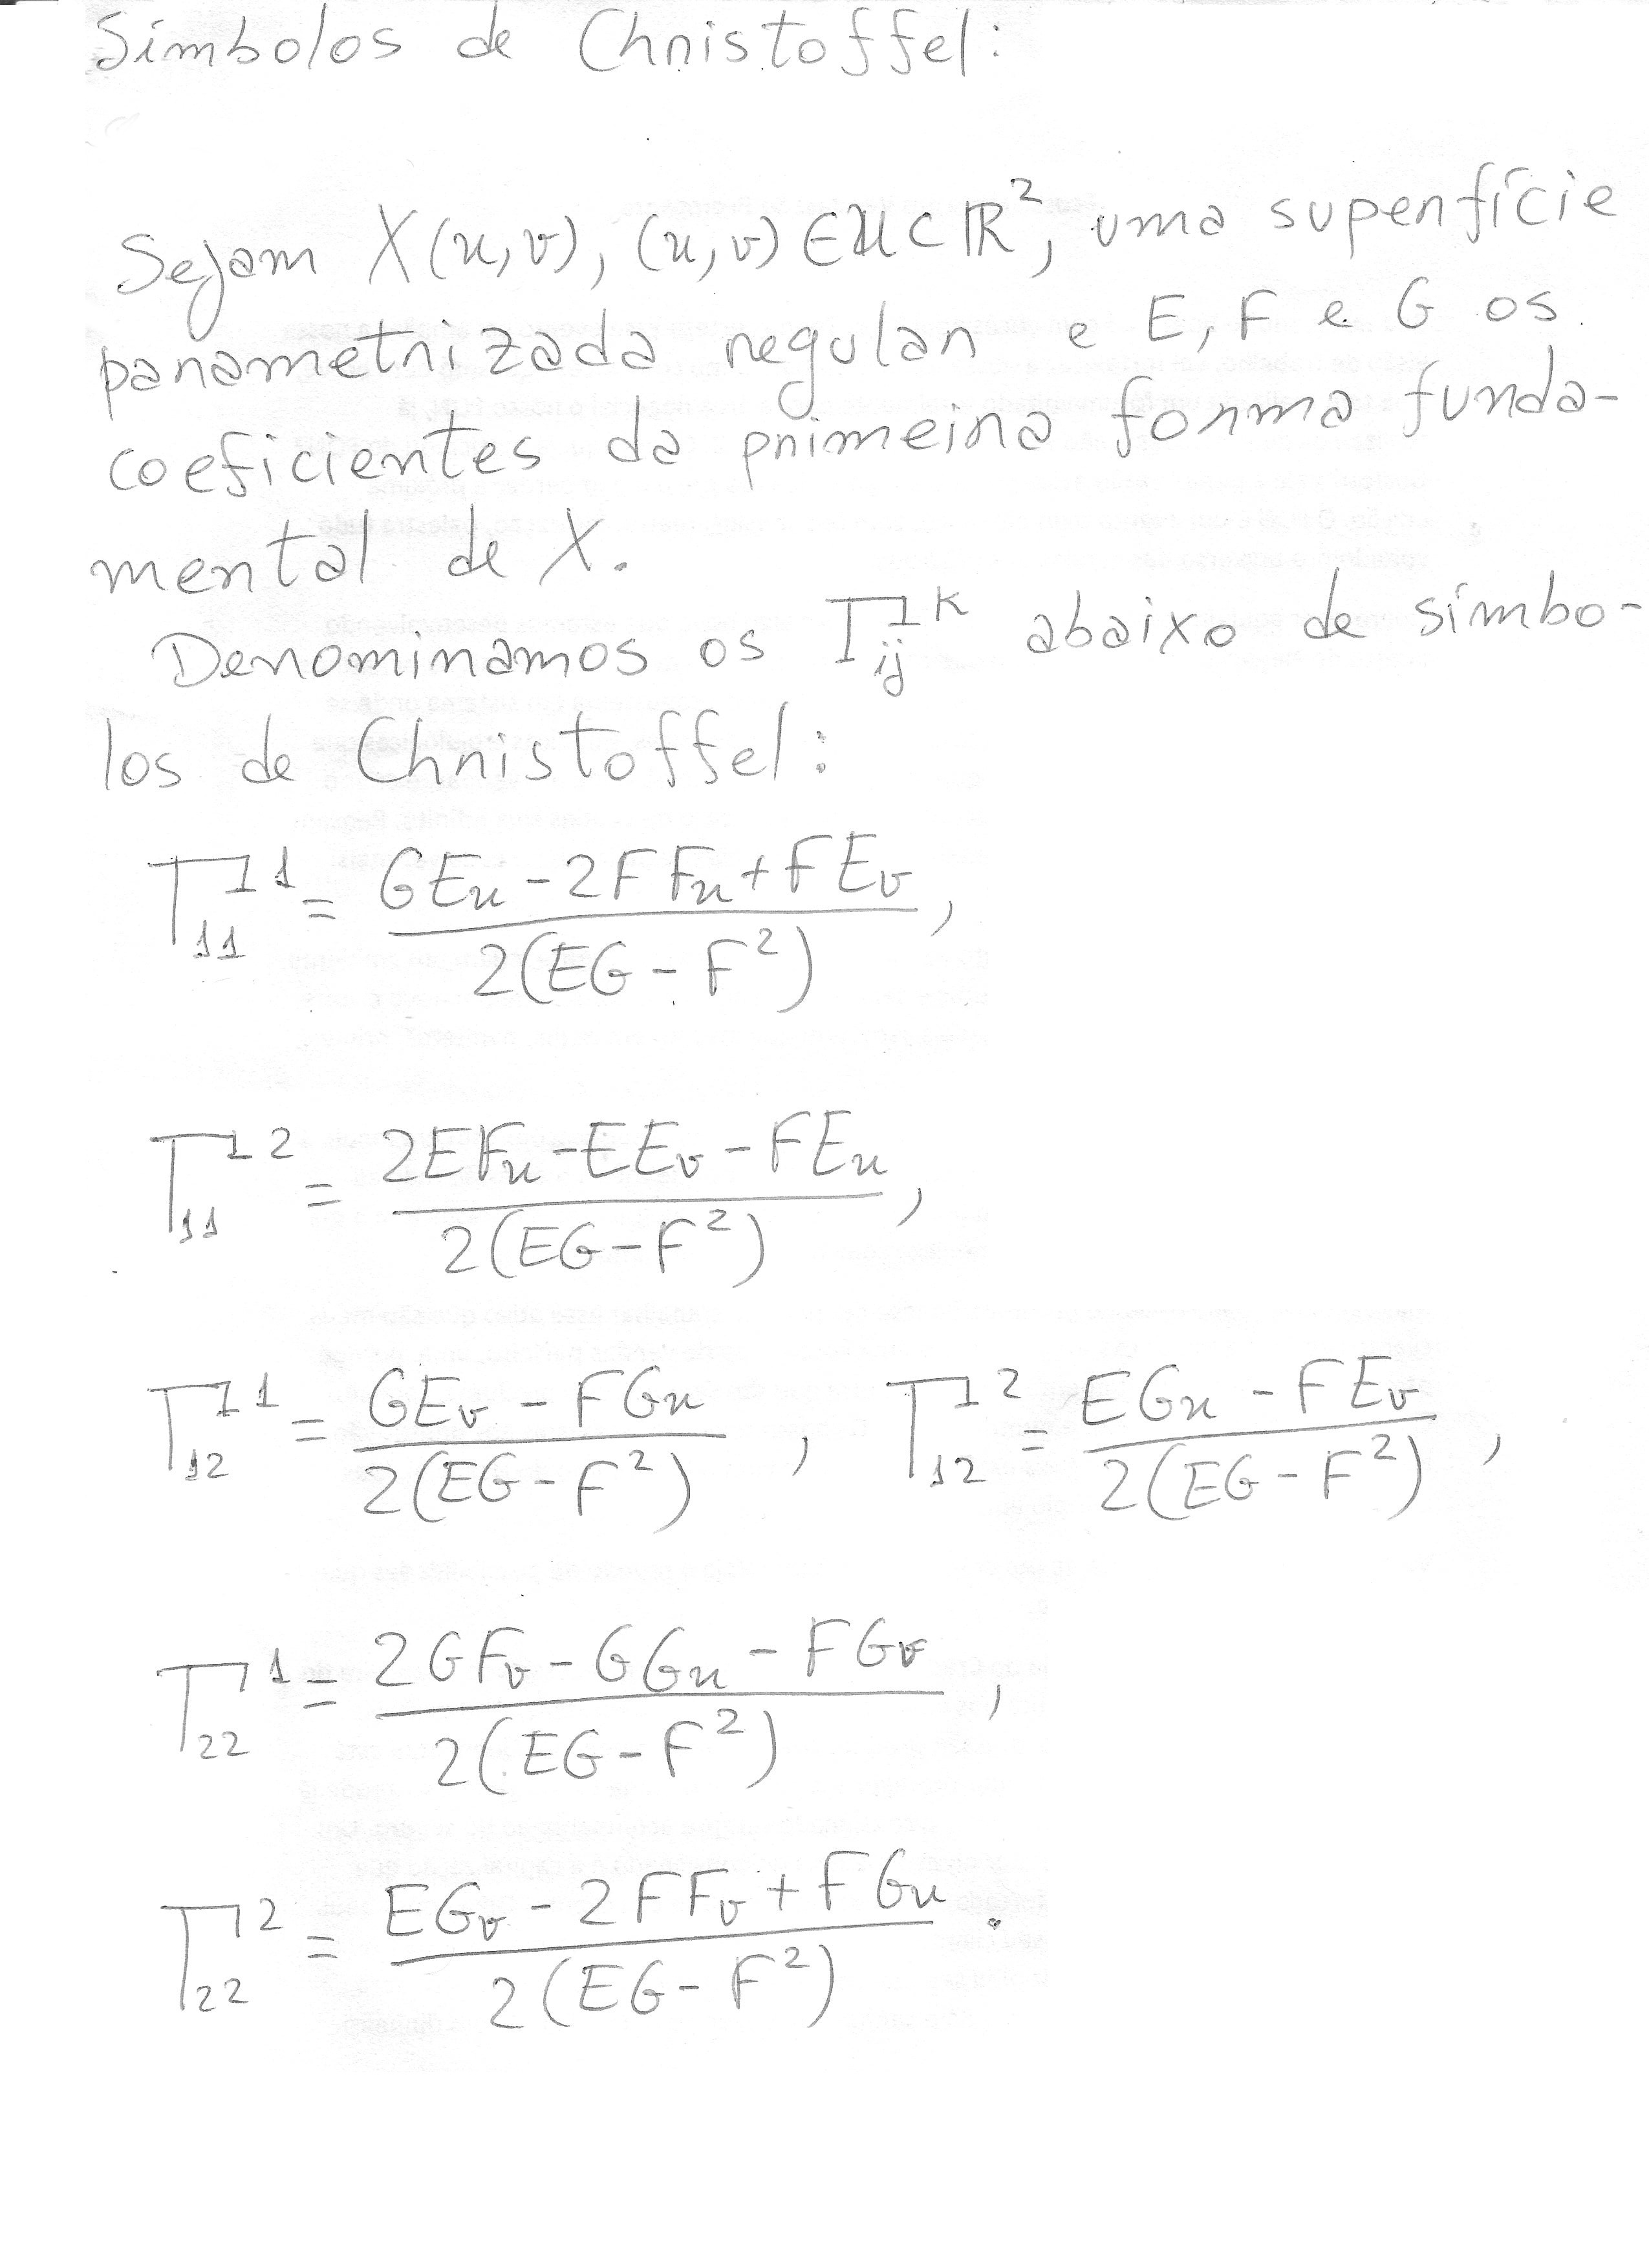 Símbolos de Christoffel:
Sejam X(u,v), (u,v) ∈ U ⊂ ℝ², uma superfície
parametrizada regular e E, F e G os
coeficientes da primeira forma funda-
mental de X.
Denominamos os Γ_{ij}^k abaixo de símbo-
los de Christoffel:
Γ_{11}^1 = (GE_u - 2FF_u + FE_v) / (2(EG - F²)),
Γ_{11}^2 = (2EF_u - EE_v - FE_u) / (2(EG - F²)),
Γ_{12}^1 = (GE_v - FG_u) / (2(EG - F²)), Γ_{12}^2 = (EG_u - FE_v) / (2(EG - F²)),
Γ_{22}^1 = (2GF_v - GG_u - FG_v) / (2(EG - F²)),
Γ_{22}^2 = (EG_v - 2FF_v + FG_u) / (2(EG - F²)).